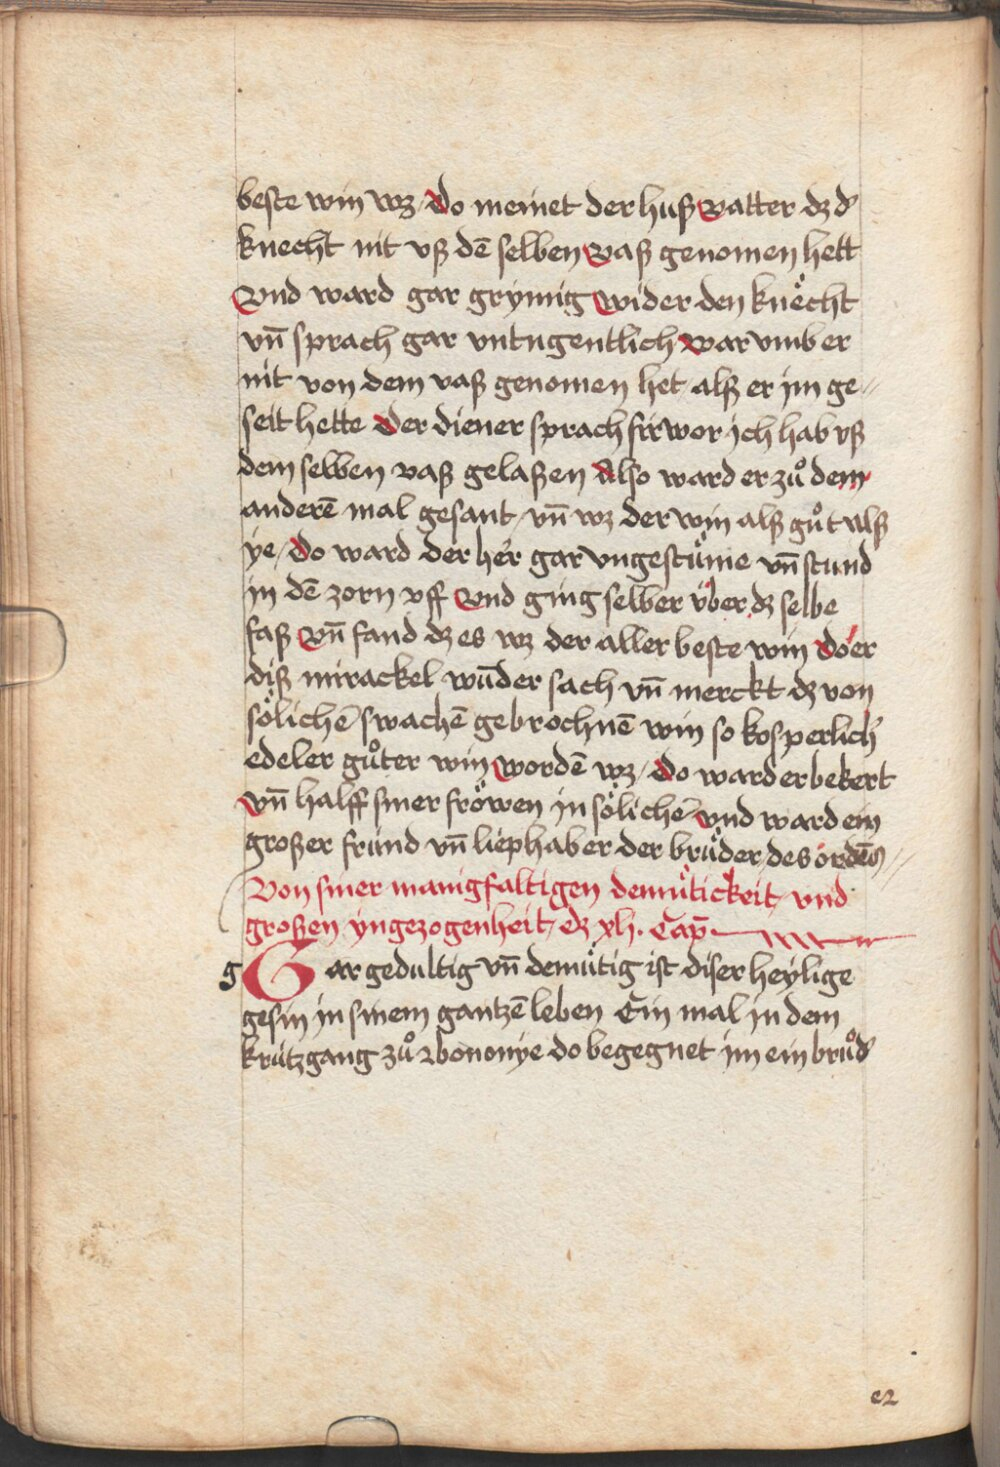 beste win wꝫ / do meinet der huß vatter dꝫ dˀ
knecht nit vß dē selben vaß genomen hett
Vnd ward gar grymig wider den knecht
vn̄ sprach gar vntugentlich war vmb er
nit von dem vaß genomen het alß er jm ge⸗
seit hette Der diener sprach fir wor jch hab vß
dem selben vaß gelaßen Also ward er zuͦ dem
anderē mal gesant / vn̄ wꝫ der win alß guͦt alß
ye / do ward der her gar vngestuͤme vn̄ stund
jn dē zorn vff Vnd ging selber über dꝫ selbe
faß Vn̄ fand dꝫ es wꝫ der aller beste win do er
diß mirackel wūder sach vn̄ merckt dꝫ von
soͤlichē swachē gebrochnē win so kosperlich
edeler guͦter win wordē wꝫ / do ward er bekert
vn̄ halff siner froͤwen jn soͤlichē vnd ward ein
großer fründ vn̄ liephaber der bruͤder / des ordēs
Von siner manigfaltigen demuͤtickeit vnd
großen yngezogenheit / dꝫ xlj. Cap̄
g Gar gedultig vn̄ demuͤtig ist diser heylige
gesin jn sinem gantzē leben Ein mal jn dem
krützgang zuͦ bononye do begegnet jm ein bruͦdˀ
e2